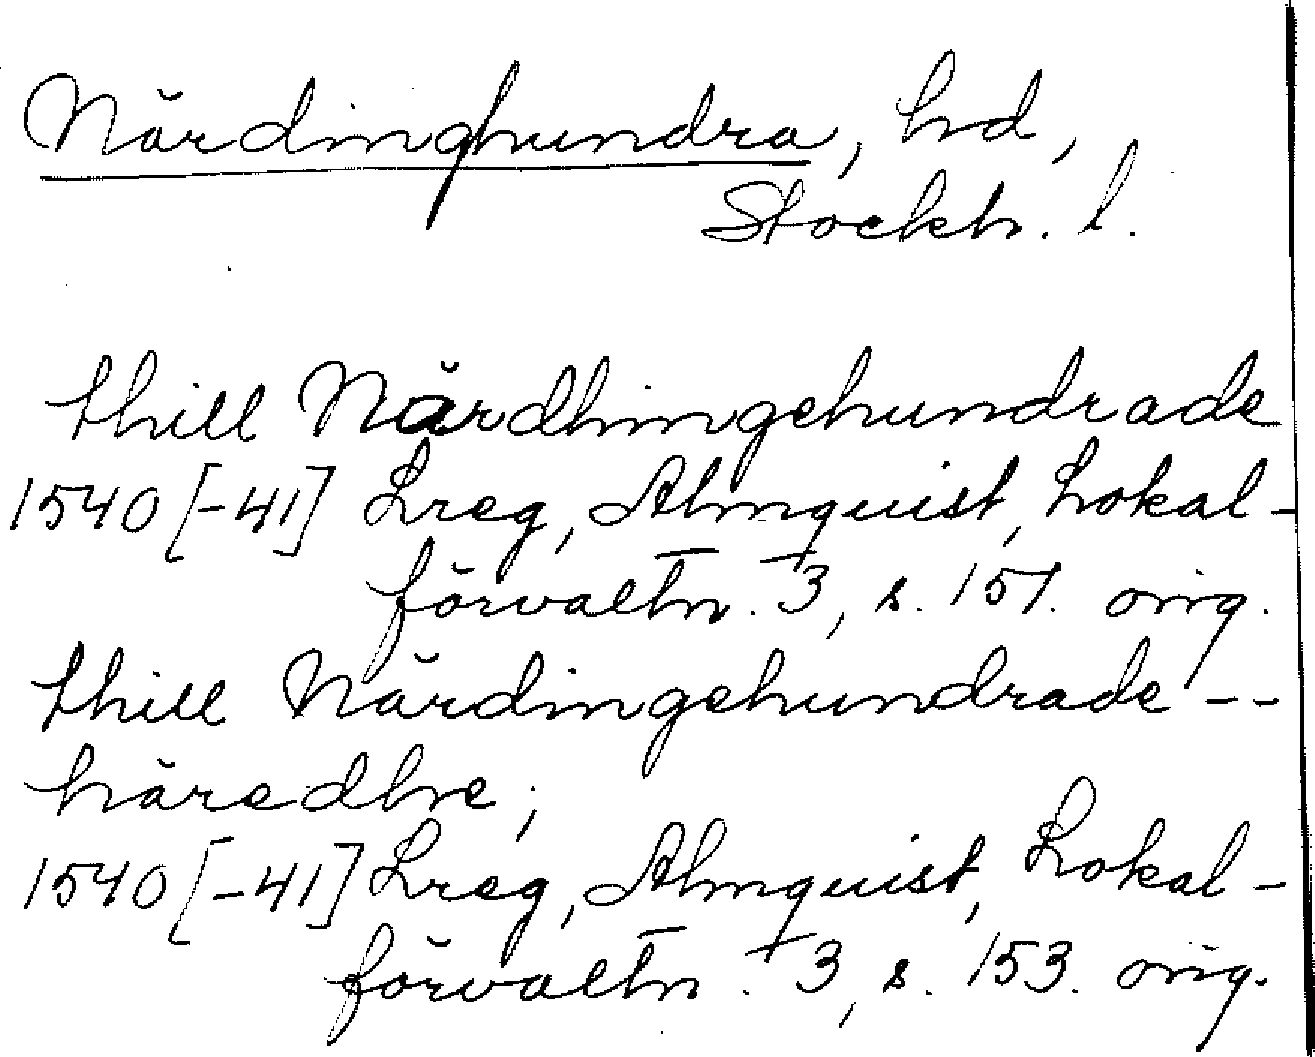 Närdinghundra, hd,
Stockh. l.
thill Närdhingehundrade
1540 [-41] Lreg, Almquist, Lokal-
förvaltn. I 3, s. 151. orig.
thill Närdingehundrade --
häredhe;
1540 [-41] Lreg, Almquist, Lokal-
förvaltn. I 3, s. 153. orig.